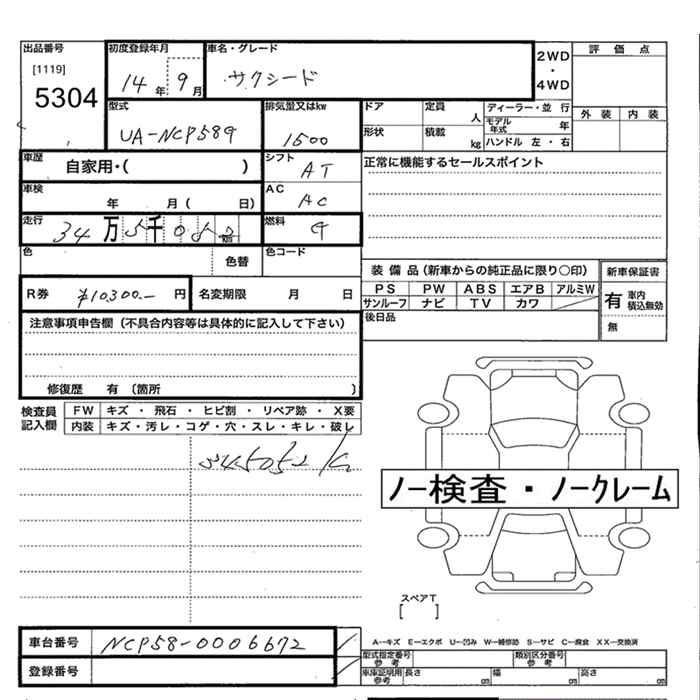 出品番号
[1119]
5304
初度登録年月
14年 9月
車名・グレード
サクシード
2WD
・
4WD
評価点
外装 内装
型式
UA-NCP58G
排気量又はkw
1500
ドア
定員
人
形状
積載
kg
ディーラー・並行
モデル年式
年
ハンドル 左・右
車歴
自家用・( )
シフト
AT
正常に機能するセールスポイント
車検
年 月( 日)
AC
AC
走行
34万5千052
燃料
G
色
色替
色コード
装備品(新車からの純正品に限り○印)
新車保証書
PS PW ABS エアB アルミW
サンルーフ ナビ TV カワ
有 車内積込無効
無
R券
¥10300.- 円
名変期限 月 日
後日品
注意事項申告欄(不具合内容等は具体的に記入して下さい)
修復歴 有 (箇所 )
検査員記入欄
FW キズ・飛石・ヒビ割・リペア跡・X要
内装 キズ・汚レ・コゲ・穴・スレ・キレ・破レ
345052
ノー検査・ノークレーム
スペアT
[ ]
A―キズ E―エクボ U―凹み W―補修跡 S―サビ C―腐食 XX―交換済
車台番号
NCP58-0006672
登録番号
型式指定番号
参考
類別区分番号
参考
車庫証明用
参考
長さ cm 幅 cm 高さ cm